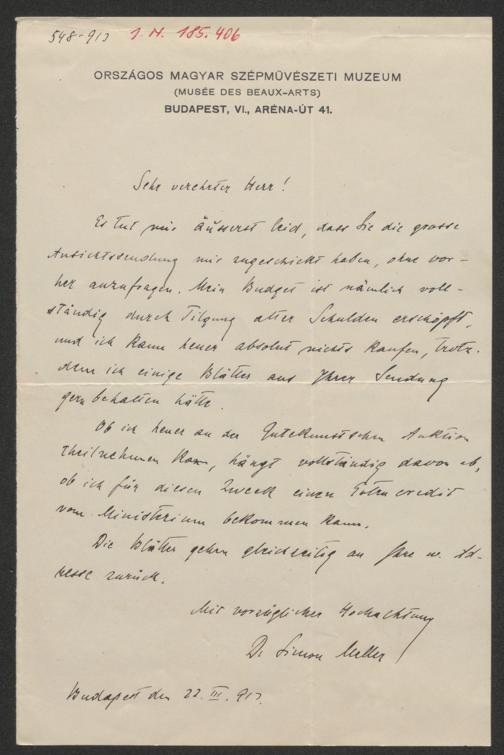 548-913 I. N. 185.406
ORSZÁGOS MAGYAR SZÉPMŰVÉSZETI MUZEUM
(MUSÉE DES BEAUX-ARTS)
BUDAPEST, VI., ARÉNA-ÚT 41.
Sehr verehrter Herr!
Es tut mir äusserst leid, dass Sie die grosse
Ansichtssendung mir zugeschickt haben, ohne vor-
her anzufragen. Mein Budget ist nämlich voll-
ständig durch Tilgung alter Schulden erschöpft,
und ich kann heuer absolut nichts kaufen, trotz-
dem ich einige Blätter aus Ihrer Sendung
gern behalten hätte.
Ob ich heuer an der Gutekunstschen Auktion
theilnehmen kann, hängt vollständig davon ab,
ob ich für diesen Zweck einen Extracredit
vom Ministerium bekommen kann.
Die Blätter gehen gleichzeitig an Ihre w. Ad-
resse zurück.
Mit vorzüglicher Hochachtung
Dr Simon Meller
Budapest den 22. III. 913.